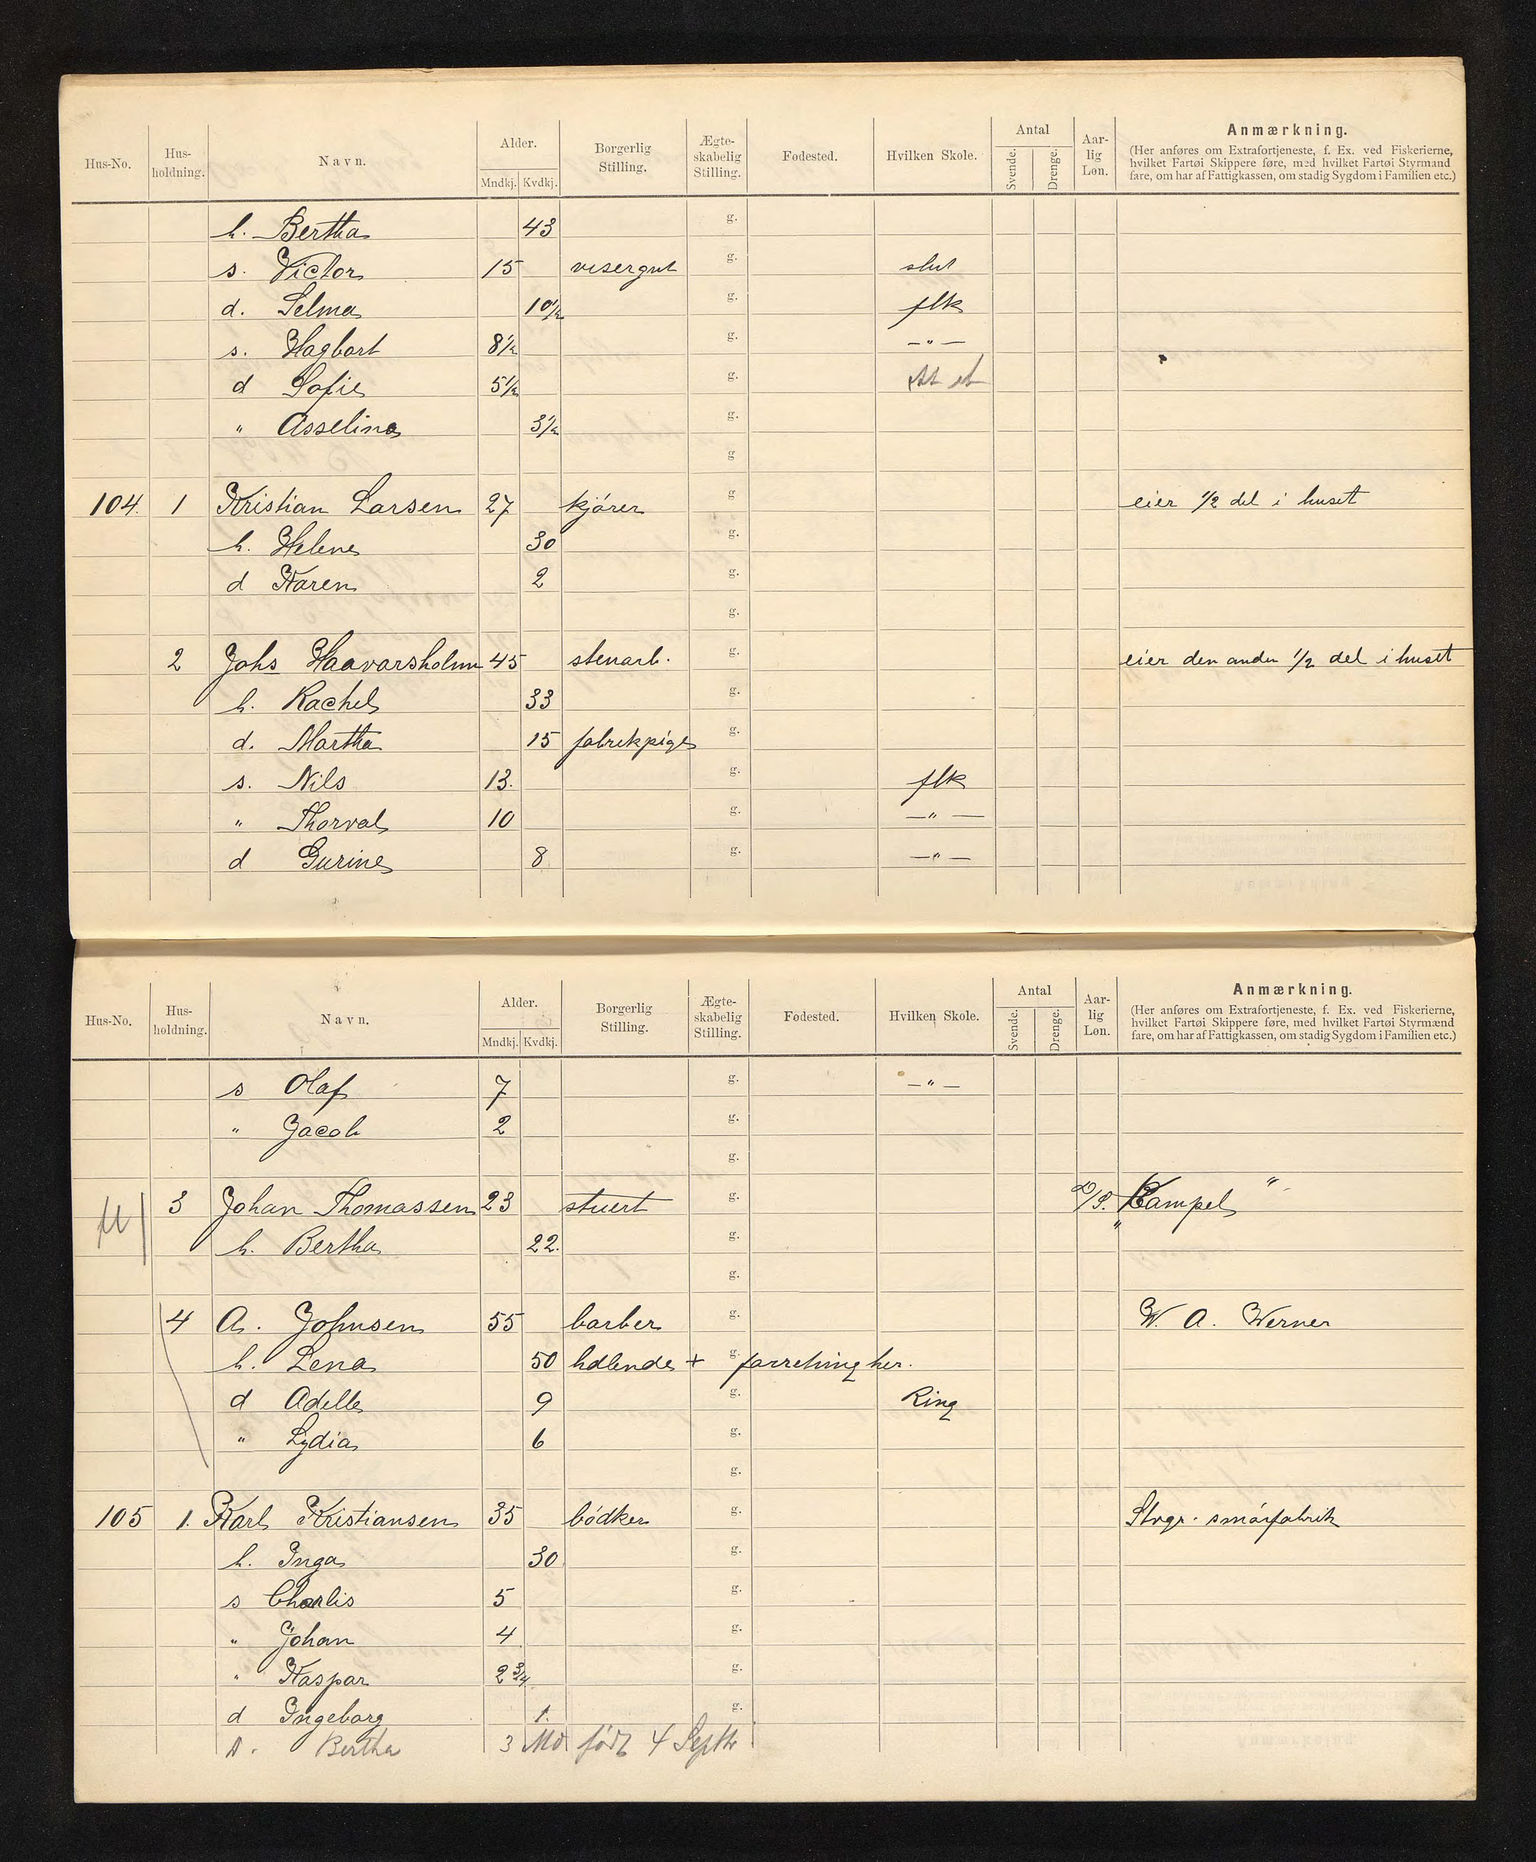 Hus-No. Hus-holdning. Navn. Alder. Mndkj. Kvdkj. Borgerlig Stilling. Ægte-skabelig Stilling. Fødested. Hvilken Skole. Antal Svende. Drenge. Aar-lig Løn. Anmærkning.
(Her anføres om Extrafortjeneste, f. Ex. ved Fiskerierne,
hvilket Fartøi Skippere føre, med hvilket Fartøi Styrmænd
fare, om har af Fattigkassen, om stadig Sygdom i Familien etc.)
h. Bertha 43 g.
s. Victor 15 visergut g. slut
d. Selma 10 1/2 g. flk
s. Hagbart 8 1/2 g. —"—
d Sofie 5 1/2 g.
" Asseline 3 1/2 g.
g
104. 1 Kristian Larsen 27 kjører g eier 1/2 del i huset
h. Helene 30 g.
d Karen 2 g.
g.
2 Johs Haavarsholm 45 stenarb. g. eier den anden 1/2 del i huset
h. Rachel 33 g.
d. Martha 15 fabrikpige g.
s. Nils 13. g. flk
" Thorval 10 g. —"—
d Gurine 8 g. —"—
Hus-No. Hus-holdning. Navn. Alder. Mndkj. Kvdkj. Borgerlig Stilling. Ægte-skabelig Stilling. Fødested. Hvilken Skole. Antal Svende. Drenge. Aar-lig Løn. Anmærkning.
(Her anføres om Extrafortjeneste, f. Ex. ved Fiskerierne,
hvilket Fartøi Skippere føre, med hvilket Fartøi Styrmænd
fare, om har af Fattigkassen, om stadig Sygdom i Familien etc.)
s Olaf 7 g. —"—
" Jacob 2 g.
g.
3 Johan Thomassen 23 stuert g. D/S. "Kampel"
h. Bertha 22. g.
g.
4 A. Johnsen 55 barber g. W. A. Werner
h. Lena 50 hdlende + g. forretning her.
d Adelle 9 g. Ring
" Lydia 6 g.
g.
105 1. Karl Kristiansen 35 bødker g. Stvgr. smørfabrik
h. Inga 30 g.
s Charlis 5 g.
" Johan 4 g.
" Kaspar 2 3/4 g.
d Ingeborg 1. g.
D. Bertha 3 Md født 4 Septb